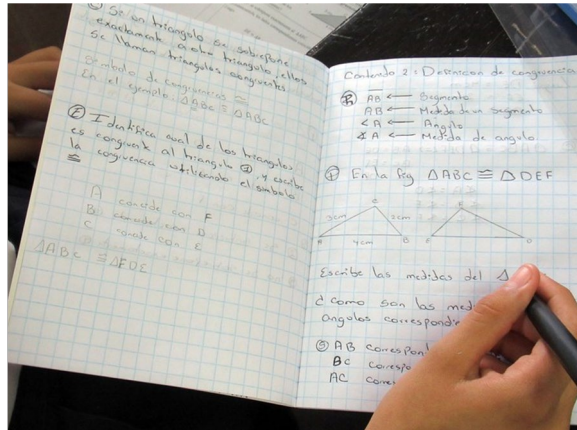 Si un triangulo se sobrepone
exactamente a otro triangulo, ellos
se llaman triangulos congruentes
Simbolo de congruencia ≅
En el ejemplo. △ABC ≅ △ABC
Ⓔ Identifica cual de los triangulos
es congruente al triangulo y escribe
la congruencia utilizando el simbolo
≅
A coincide con F
B coincide con D
C coincide con E
△ABC ≅ △FDE
Contenido 2: Definicion de congruencia
Ⓡ AB ← Segmento
AB ← Medida de un segmento
∢A ← Angulo
∡A ← Medida de angulo
Ⓟ En la fig △ABC ≅ △DEF
3cm
2cm
4cm
B
F
Escribe las medidas del △
¿ como son las med
angulos correspondie
Ⓢ AB correspon
BC correspo
AC corre